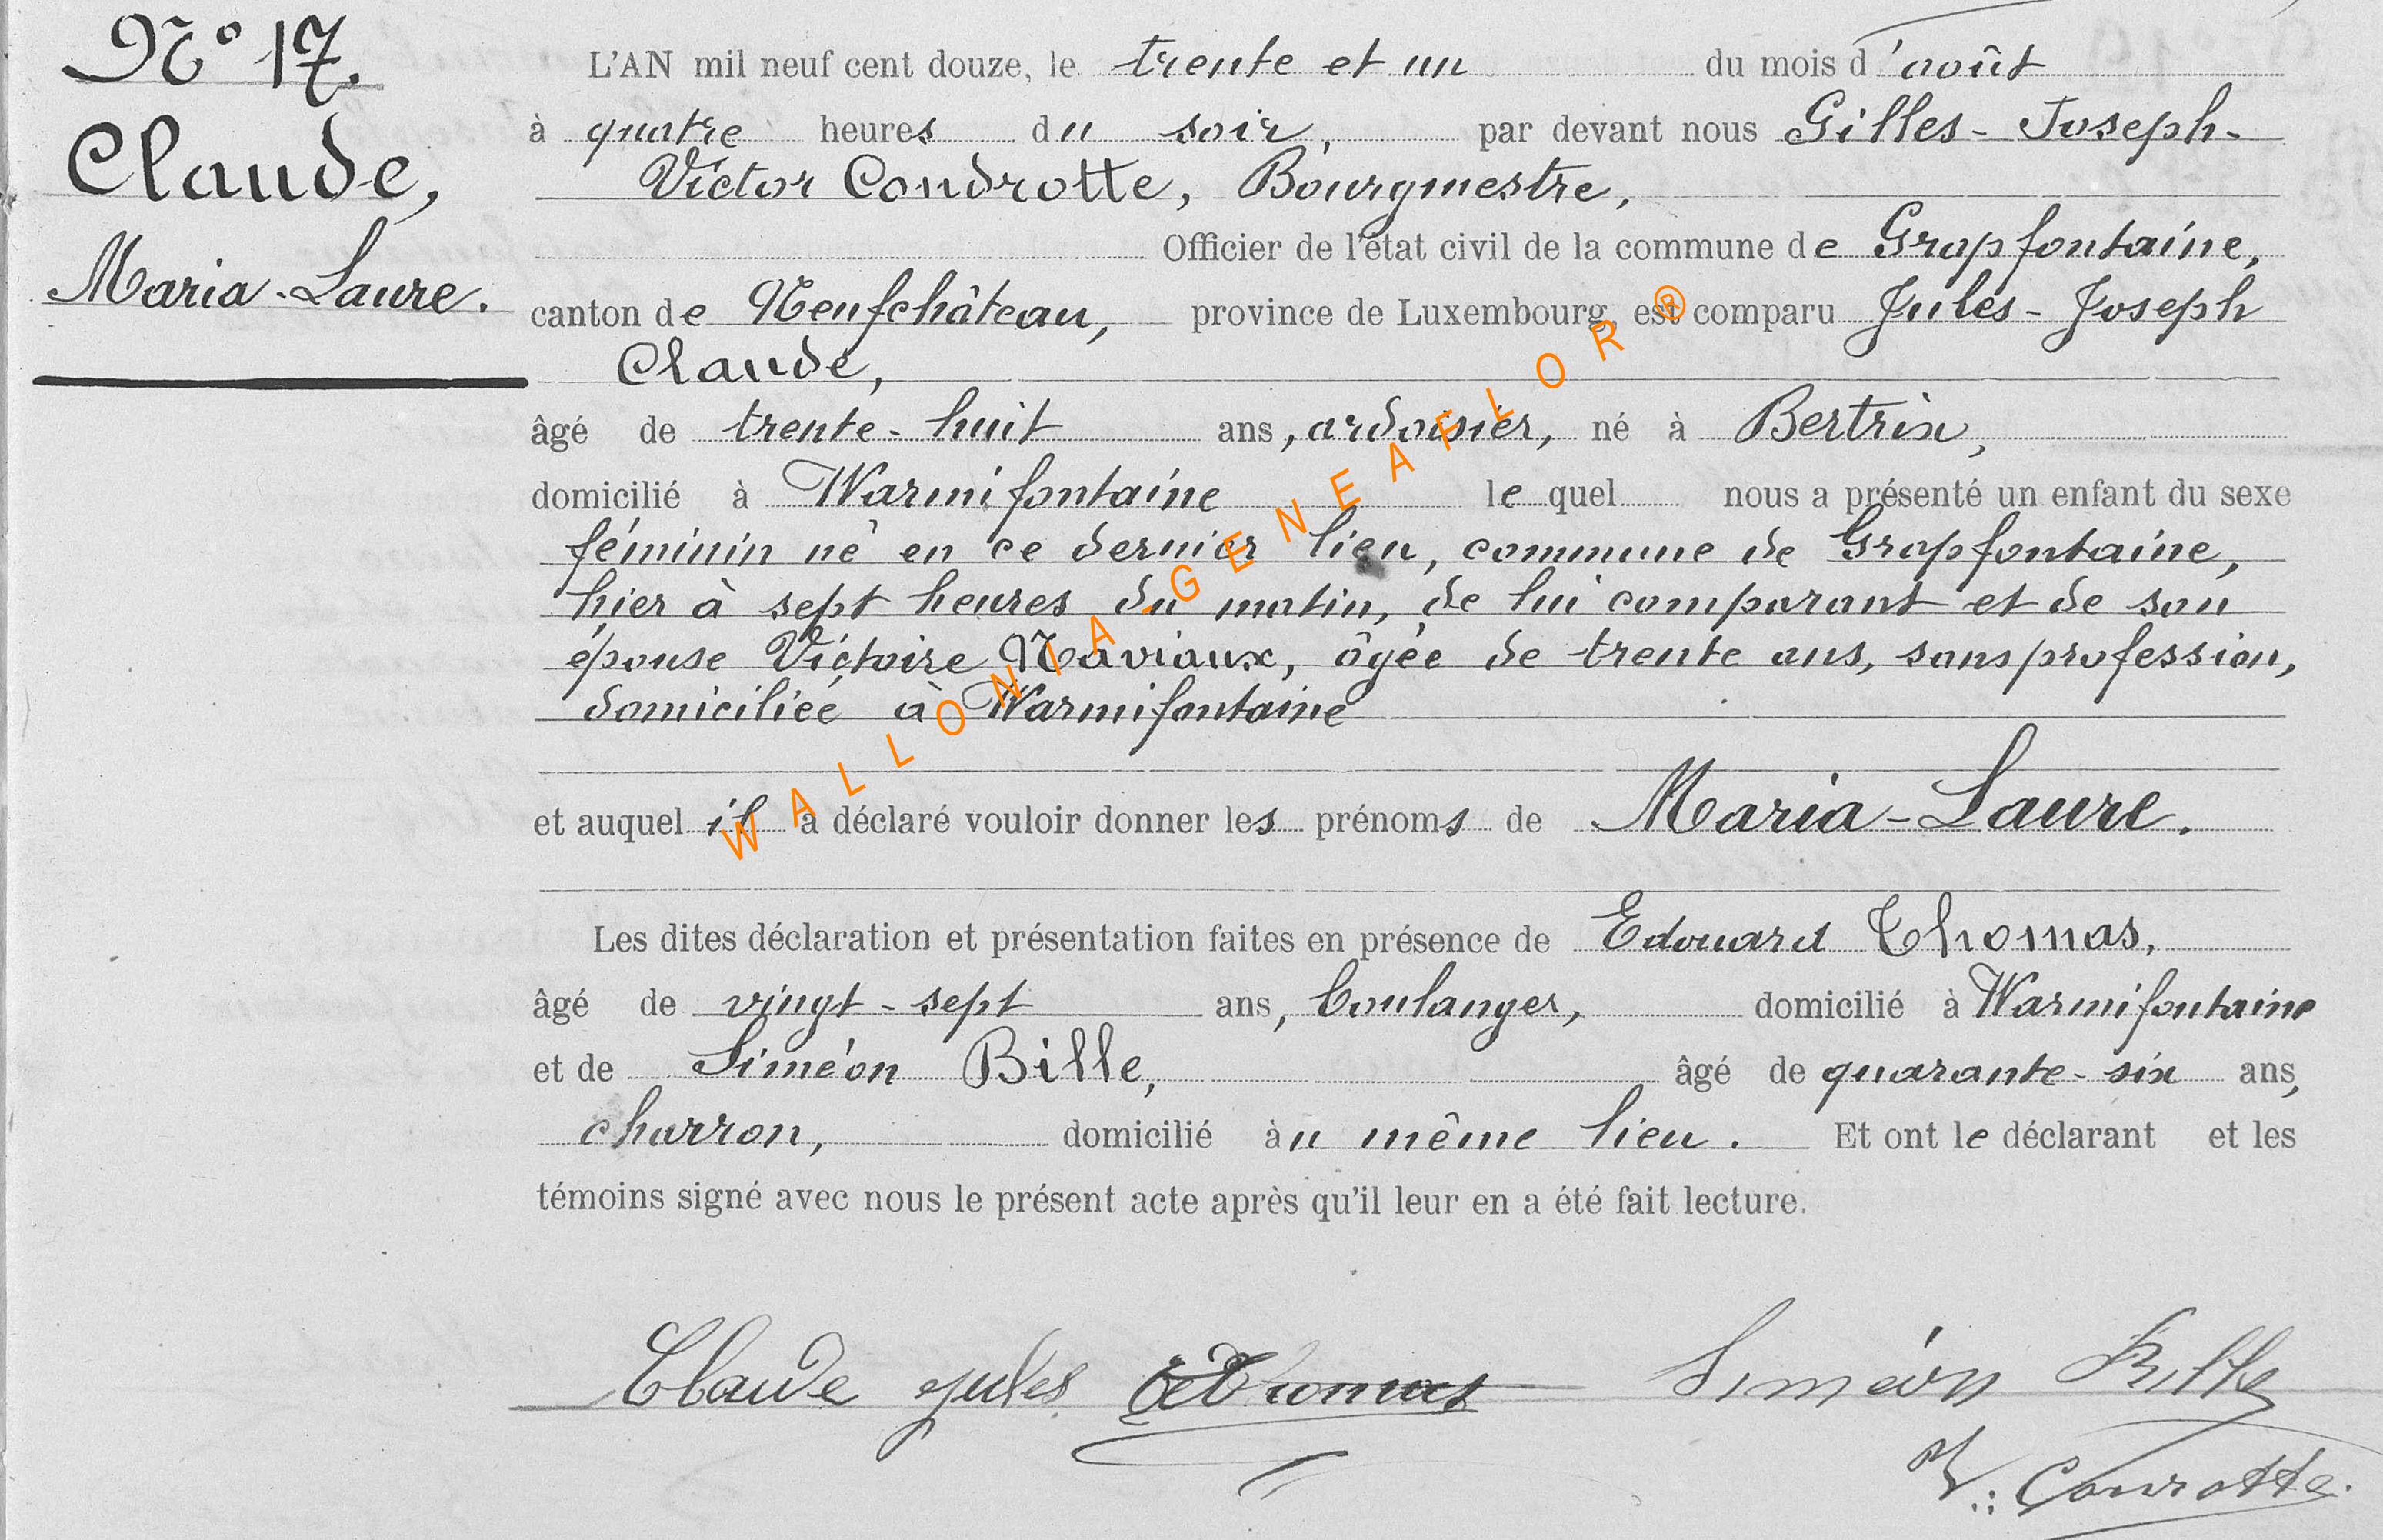 N° 17.
Claude,
Maria-Laure.
L'AN mil neuf cent douze, le trente et un du mois d'août
à quatre heures du soir, par devant nous Gilles-Joseph-
Victor Condrotte, Bourgmestre,
Officier de l'état civil de la commune de Grapfontaine,
canton de Neufchâteau, province de Luxembourg, est comparu Jules-Joseph
Claude,
âgé de trente-huit ans, ardoisier, né à Bertrix,
domicilié à Warmifontaine lequel nous a présenté un enfant du sexe
féminin né en ce dernier lieu, commune de Grapfontaine,
hier à sept heures du matin, de lui comparant et de son
épouse Victoire Naviaux, âgée de trente ans, sans profession,
domiciliée à Warmifontaine
et auquel il a déclaré vouloir donner les prénoms de Maria-Laure.
Les dites déclaration et présentation faites en présence de Edouard Thomas,
âgé de vingt-sept ans, boulanger, domicilié à Warmifontaine
et de Siméon Bille, âgé de quarante-six ans,
charron, domicilié au même lieu. Et ont le déclarant et les
témoins signé avec nous le présent acte après qu'il leur en a été fait lecture.
Claude jules Ed Thomas Siméon Bille
V. Condrotte.
WALLONIA-GENEAFLOR®